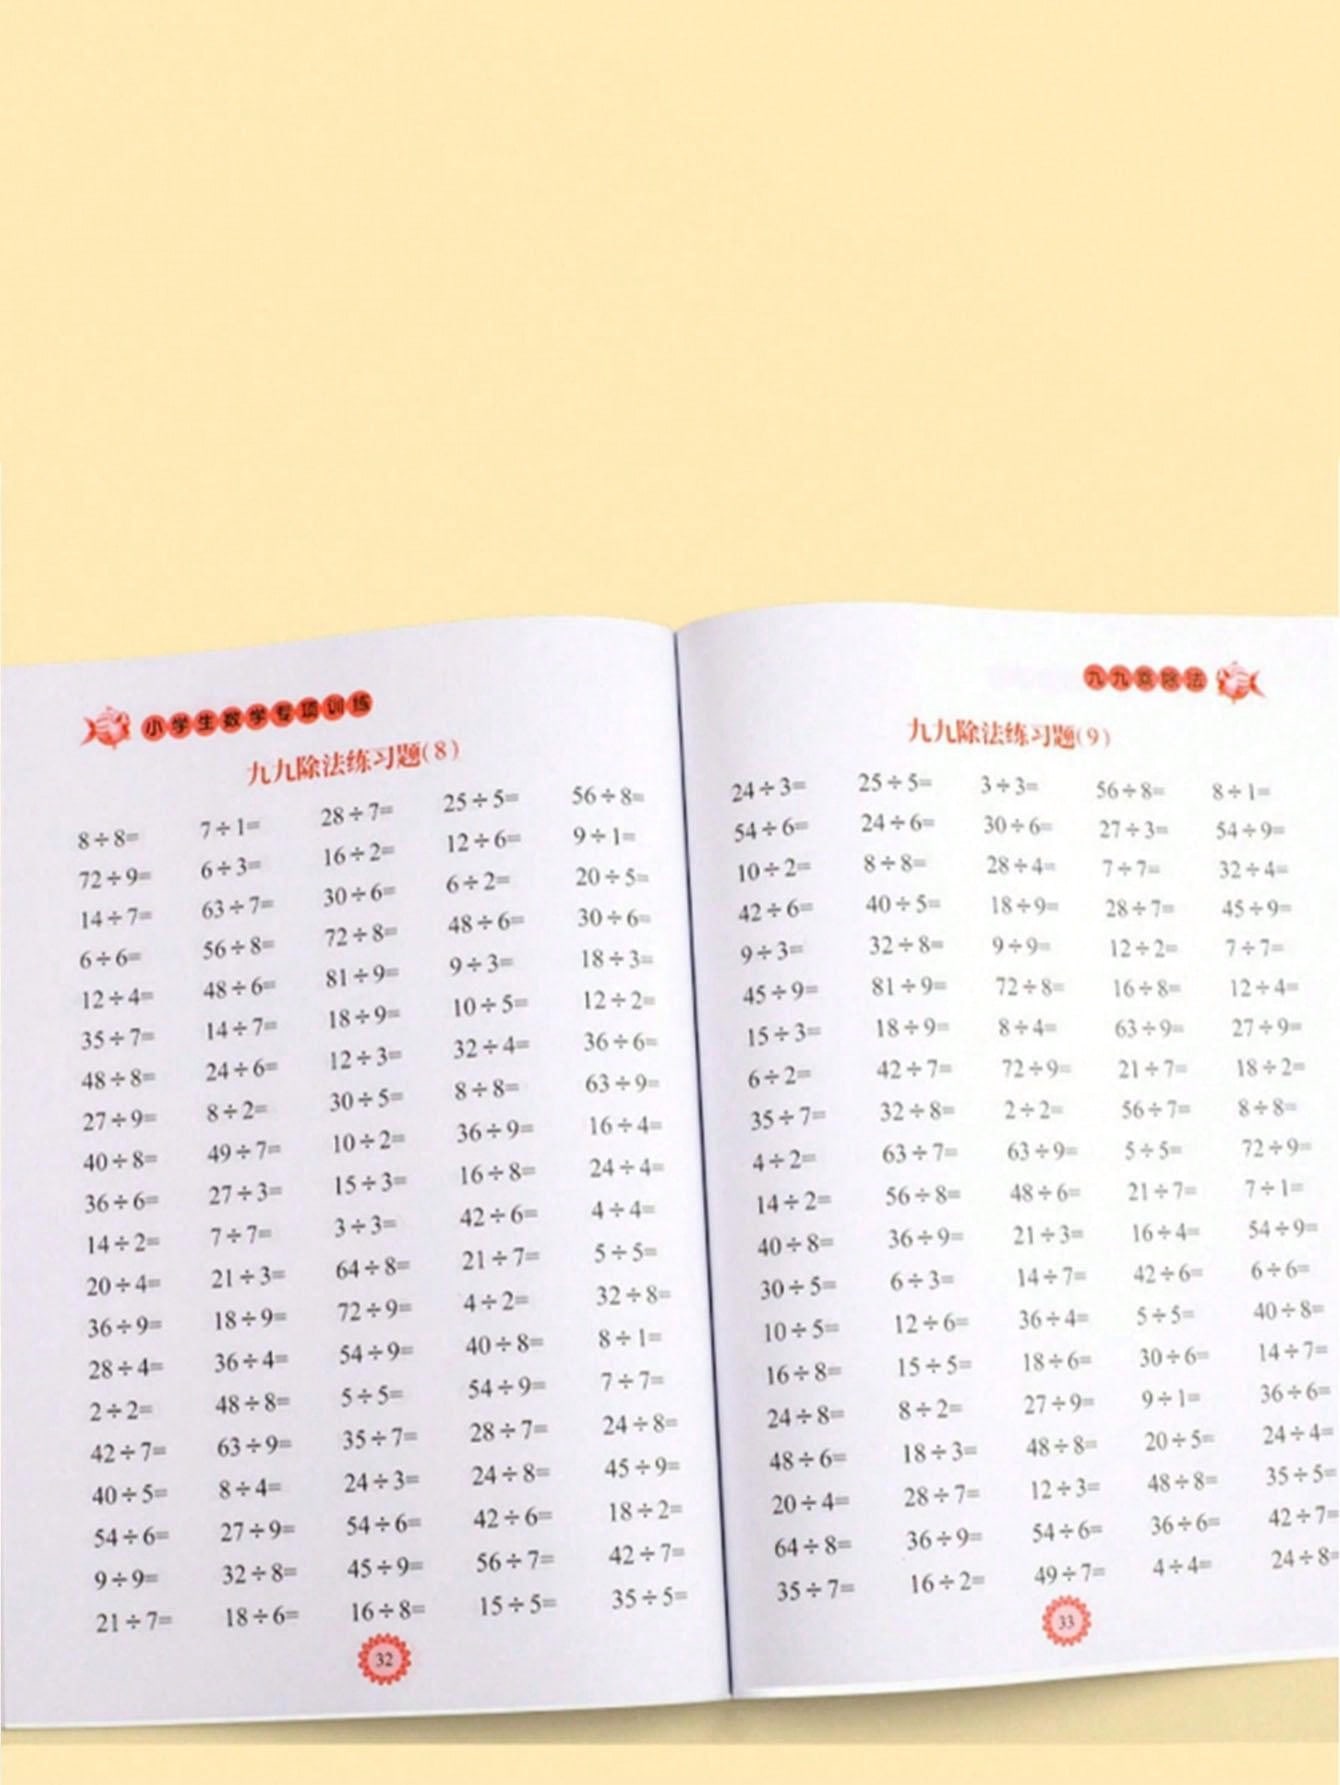 小学生数学专项训练
九九除法练习题(8)
8÷8= 7÷1= 28÷7= 25÷5= 56÷8=
72÷9= 6÷3= 16÷2= 12÷6= 9÷1=
14÷7= 63÷7= 30÷6= 6÷2= 20÷5=
6÷6= 56÷8= 72÷8= 48÷6= 30÷6=
12÷4= 48÷6= 81÷9= 9÷3= 18÷3=
35÷7= 14÷7= 18÷9= 10÷5= 12÷2=
48÷8= 24÷6= 12÷3= 32÷4= 36÷6=
27÷9= 8÷2= 30÷5= 8÷8= 63÷9=
40÷8= 49÷7= 10÷2= 36÷9= 16÷4=
36÷6= 27÷3= 15÷3= 16÷8= 24÷4=
14÷2= 7÷7= 3÷3= 42÷6= 4÷4=
20÷4= 21÷3= 64÷8= 21÷7= 5÷5=
36÷9= 18÷9= 72÷9= 4÷2= 32÷8=
28÷4= 36÷4= 54÷9= 40÷8= 8÷1=
2÷2= 48÷8= 5÷5= 54÷9= 7÷7=
42÷7= 63÷9= 35÷7= 28÷7= 24÷8=
40÷5= 8÷4= 24÷3= 24÷8= 45÷9=
54÷6= 27÷9= 54÷6= 42÷6= 18÷2=
9÷9= 32÷8= 45÷9= 56÷7= 42÷7=
21÷7= 18÷6= 16÷8= 15÷5= 35÷5=
32
九九乘除法
九九除法练习题(9)
24÷3= 25÷5= 3÷3= 56÷8= 8÷1=
54÷6= 24÷6= 30÷6= 27÷3= 54÷9=
10÷2= 8÷8= 28÷4= 7÷7= 32÷4=
42÷6= 40÷5= 18÷9= 28÷7= 45÷9=
9÷3= 32÷8= 9÷9= 12÷2= 7÷7=
45÷9= 81÷9= 72÷8= 16÷8= 12÷4=
15÷3= 18÷9= 8÷4= 63÷9= 27÷9=
6÷2= 42÷7= 72÷9= 21÷7= 18÷2=
35÷7= 32÷8= 2÷2= 56÷7= 8÷8=
4÷2= 63÷7= 63÷9= 5÷5= 72÷9=
14÷2= 56÷8= 48÷6= 21÷7= 7÷1=
40÷8= 36÷9= 21÷3= 16÷4= 54÷9=
30÷5= 6÷3= 14÷7= 42÷6= 6÷6=
10÷5= 12÷6= 36÷4= 5÷5= 40÷8=
16÷8= 15÷5= 18÷6= 30÷6= 14÷7=
24÷8= 8÷2= 27÷9= 9÷1= 36÷6=
48÷6= 18÷3= 48÷8= 20÷5= 24÷4=
20÷4= 28÷7= 12÷3= 48÷8= 35÷5=
64÷8= 36÷9= 54÷6= 36÷6= 42÷7=
35÷7= 16÷2= 49÷7= 4÷4= 24÷8=
33